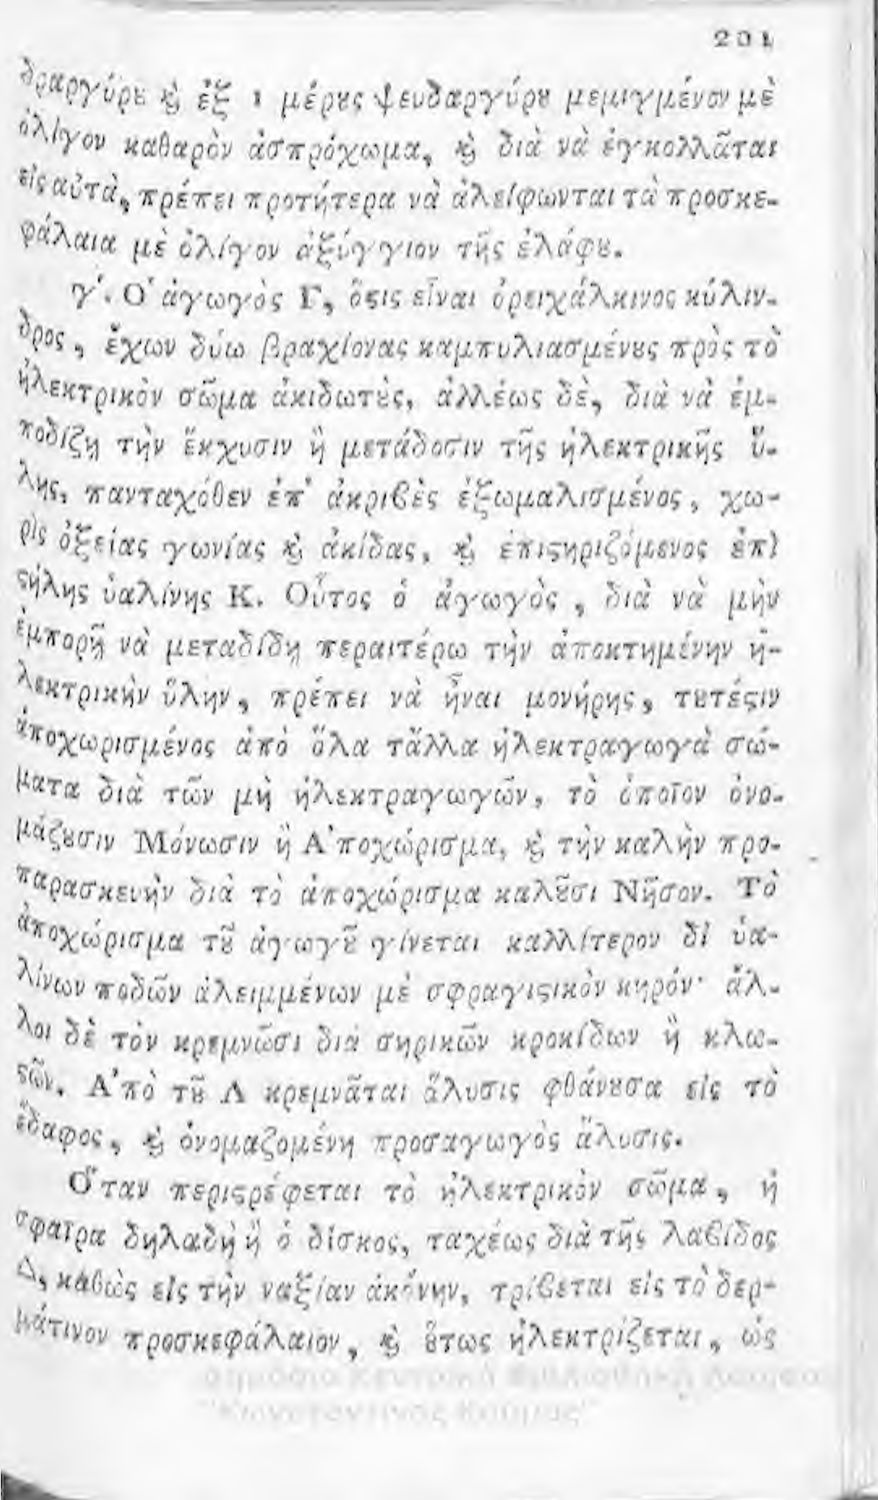 201
δραργύρȣ ϗ ἐξ 1 μέρȣς ψευδαργύρȣ μεμιγμένον μὲ
ὀλίγον καθαρὸν ἀσπρόχωμα, ϗ διὰ νὰ ἐγκολλᾶται
εἰς αὐτὰ, πρέπει προτήτερα νὰ ἀλείφωνται τὰ προσκε-
φάλαια μὲ ὀλίγον ἀξύγγιον τῆς ἐλάφȣ.
γ΄. Ο῾ ἀγωγὸς Γ, ὅϛις εἶναι ὀρειχάλκινος κύλιν-
δρος, ἔχων δύω βραχίονας καμπυλιασμένȣς πρὸς τὸ
ἠλεκτρικὸν σῶμα ἀκιδωτȣ̀ς, ἀλλέως δὲ, διὰ νὰ ἐμ-
ποδίζῃ τὴν ἔκχυσιν ἢ μετάδοσιν τῆς ἠλεκτρικῆς ὕ-
λης, πανταχόθεν ἐπ' ἀκριβὲς ἐξωμαλισμένος, χω-
ρὶς ὀξείας γωνίας ϗ ἀκίδας, ϗ ἐπιϛηριζόμενος ἐπὶ
ϛήλης ὑαλίνης Κ. Οὗτος ὁ ἀγωγὸς, διὰ νὰ μὴν
ἐμπορῇ νὰ μεταδίδῃ περαιτέρω τὴν ἀποκτημένην ἠ-
λεκτρικὴν ὕλην, πρέπει νὰ ἦναι μονήρης, τȣτέϛιν
ἀποχωρισμένος ἀπὸ ὅλα τἄλλα ἠλεκτραγωγὰ σώ-
ματα διὰ τῶν μὴ ἠλεκτραγωγῶν, τὸ ὁποῖον ὀνο-
μάζȣσιν Μόνωσιν ἢ Α᾿ποχώρισμα, ϗ τὴν καλὴν προ-
παρασκευὴν διὰ τὸ ἀποχώρισμα καλȣ͂σι Νῆσον. Τὸ
ἀποχώρισμα τȣ͂ ἀγωγȣ͂ γίνεται καλλίτερον δι ὑα-
λίνων ποδῶν ἀλειμμένων μὲ σφραγιϛικὸν κηρόν· ἄλ-
λοι δὲ τὸν κρεμνῶσι διὰ σηρικῶν κροκίδων ἢ κλω-
ϛῶν. Α᾿πὸ τȣ͂ Λ κρεμνᾶται ἅλυσις φθάνȣσα εἰς τὸ
ἔδαφος, ϗ ὀνομαζομένη προσαγωγὸς ἅλυσις.
Ο῞ταν περιϛρέφεται τὸ ἠλεκτρικὸν σῶμα, ἡ
σφαῖρα δηλαδὴ ἢ ὁ δίσκος, ταχέως διὰ τῆς λαβίδος
Δ, καθὼς εἰς τὴν ναξίαν ἀκόνην, τρίβεται εἰς τὸ δερ-
μάτινον προσκεφάλαιον, ϗ ȣ̔́τως ἠλεκτρίζεται, ὡς
Δημόσια Κεντρική Βιβλιοθήκη
"Κωνσταντίνος Κούμας"